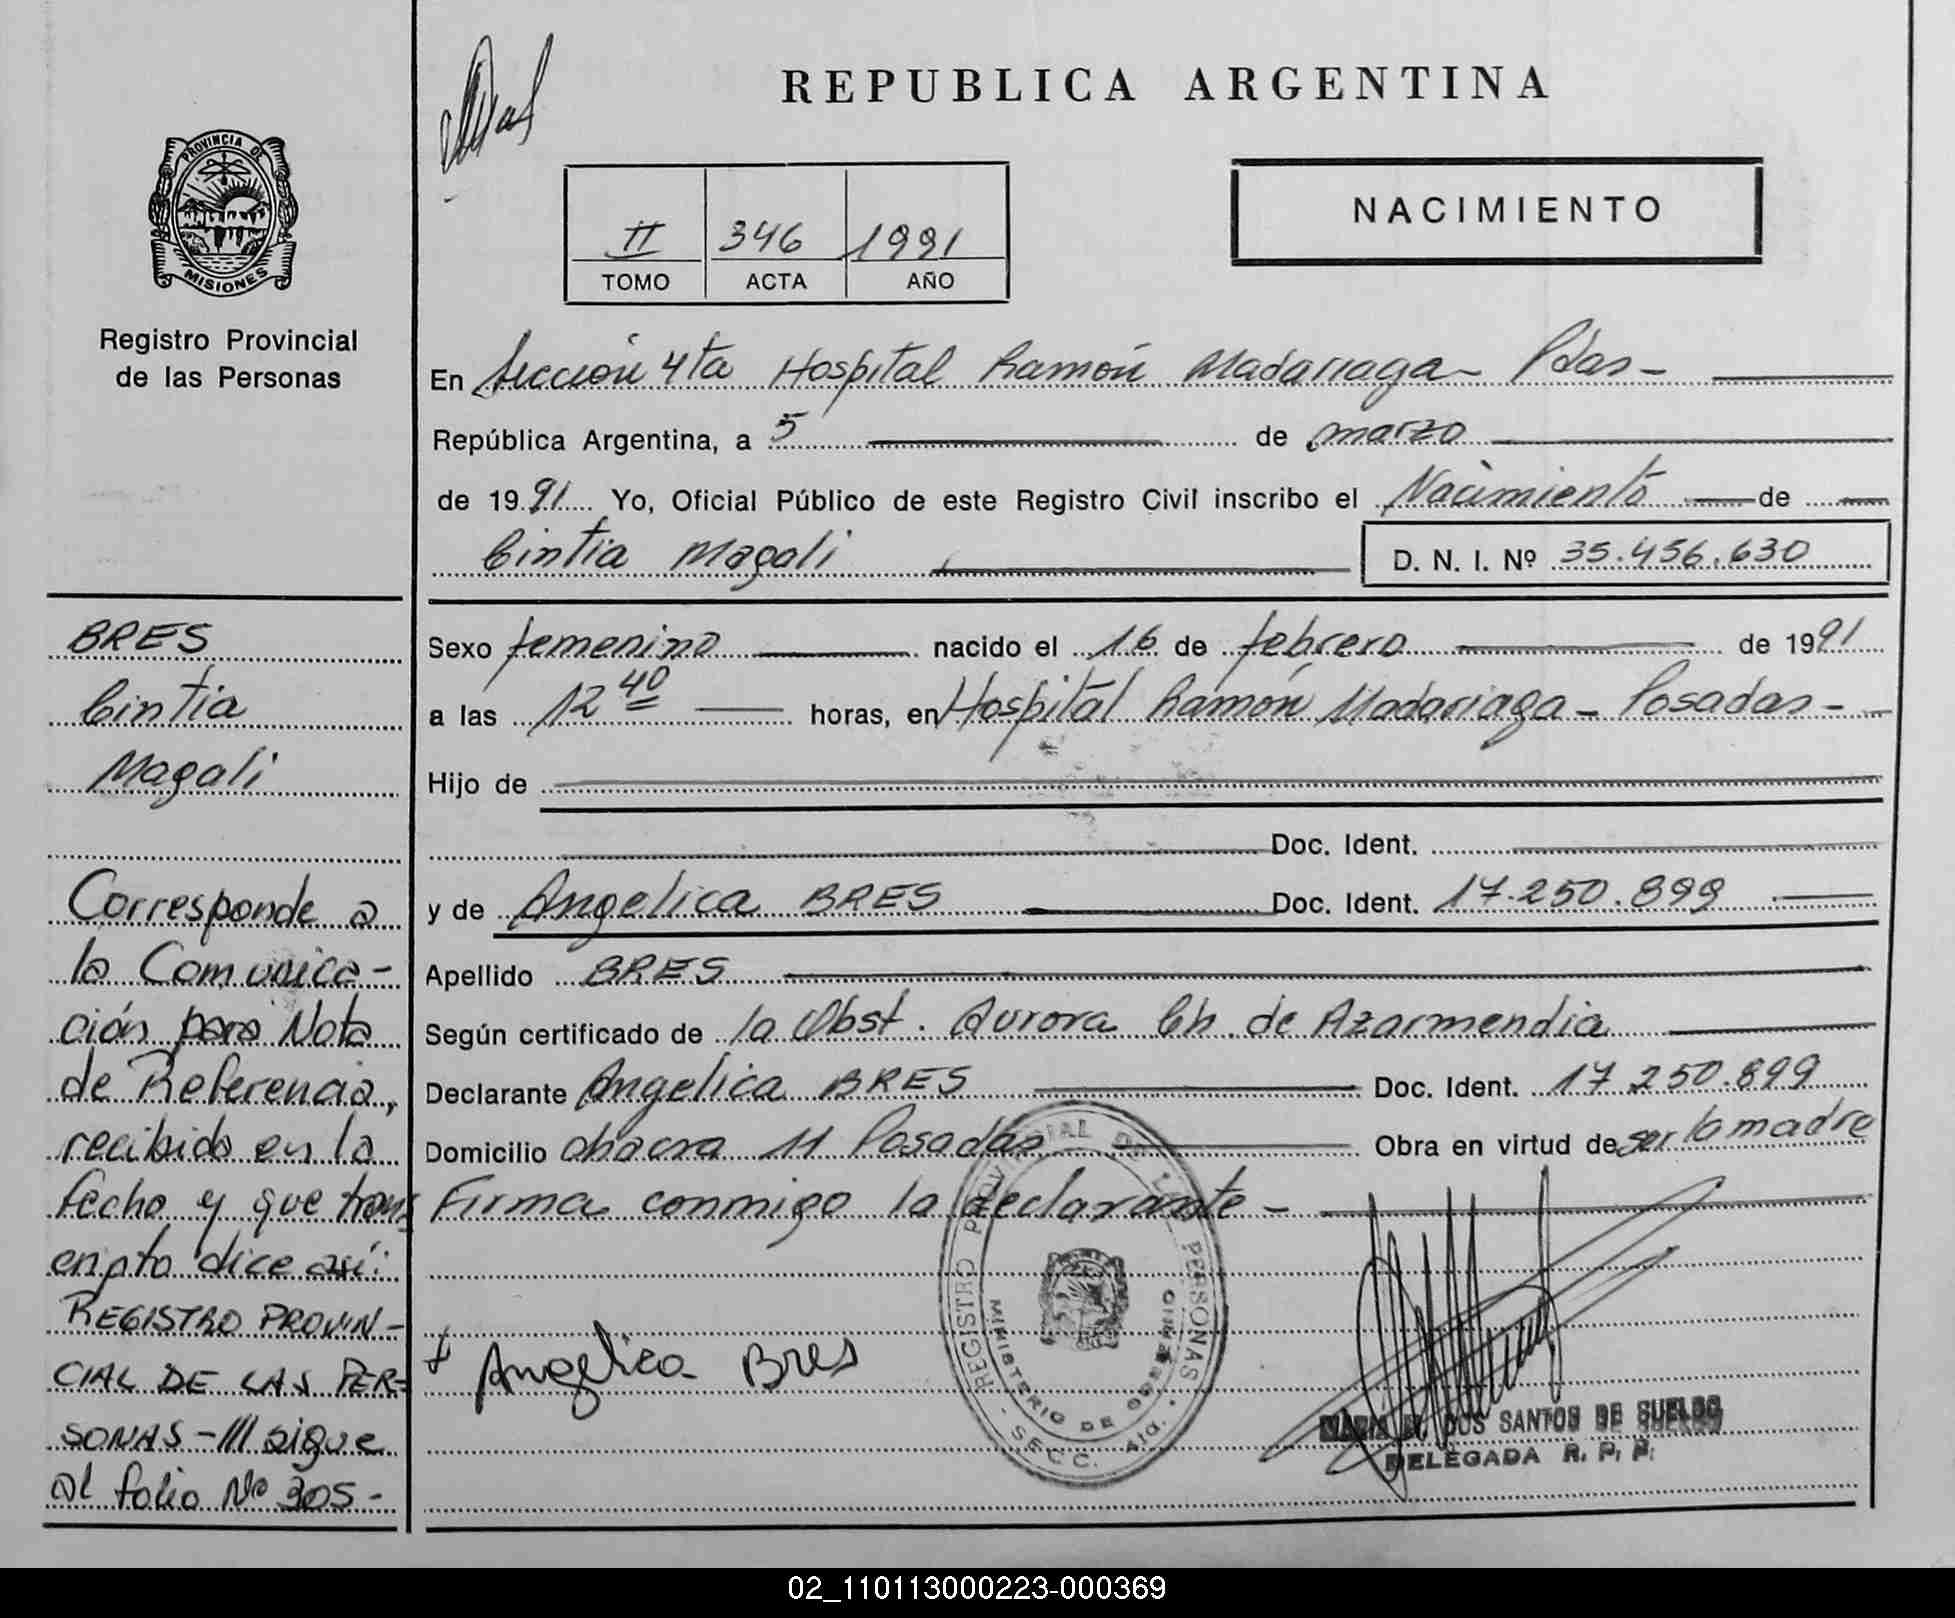 REPUBLICA ARGENTINA
PROVINCIA DE
MISIONES
Registro Provincial
de las Personas
II 346 1991
TOMO ACTA AÑO
NACIMIENTO
En Sección 4ta Hospital Ramón Madariaga - Pdas -
República Argentina, a 5 de marzo
de 1991 Yo, Oficial Público de este Registro Civil inscribo el Nacimiento de
Cintia Magali D. N. I. Nº 35.456.630
Sexo femenino nacido el 16 de febrero de 1991
a las 12 40 horas, en Hospital Ramón Madariaga - Posadas -
Hijo de
Doc. Ident.
y de Angelica BRES Doc. Ident. 17.250.899
Apellido BRES
Según certificado de la Obst. Aurora Ch. de Azarmendia
Declarante Angelica BRES Doc. Ident. 17.250.899
Domicilio chacra 11 Posadas Obra en virtud de ser la madre
Firma conmigo la declarante -
Angelica Bres
REGISTRO PROVINCIAL DE LAS PERSONAS
MINISTERIO DE GOBIERNO
SECC. 4ta.
DOS SANTOS DE SUELDO
DELEGADA R. P. P.
BRES
Cintia
Magali
Corresponde a
la Comunica-
ción para Nota
de Referencia,
recibida en la
fecha y que trans
cripta dice así:
REGISTRO PROVIN-
CIAL DE LAS PER=
SONAS - /// sigue
al folio Nº 305 -
02_110113000223-000369